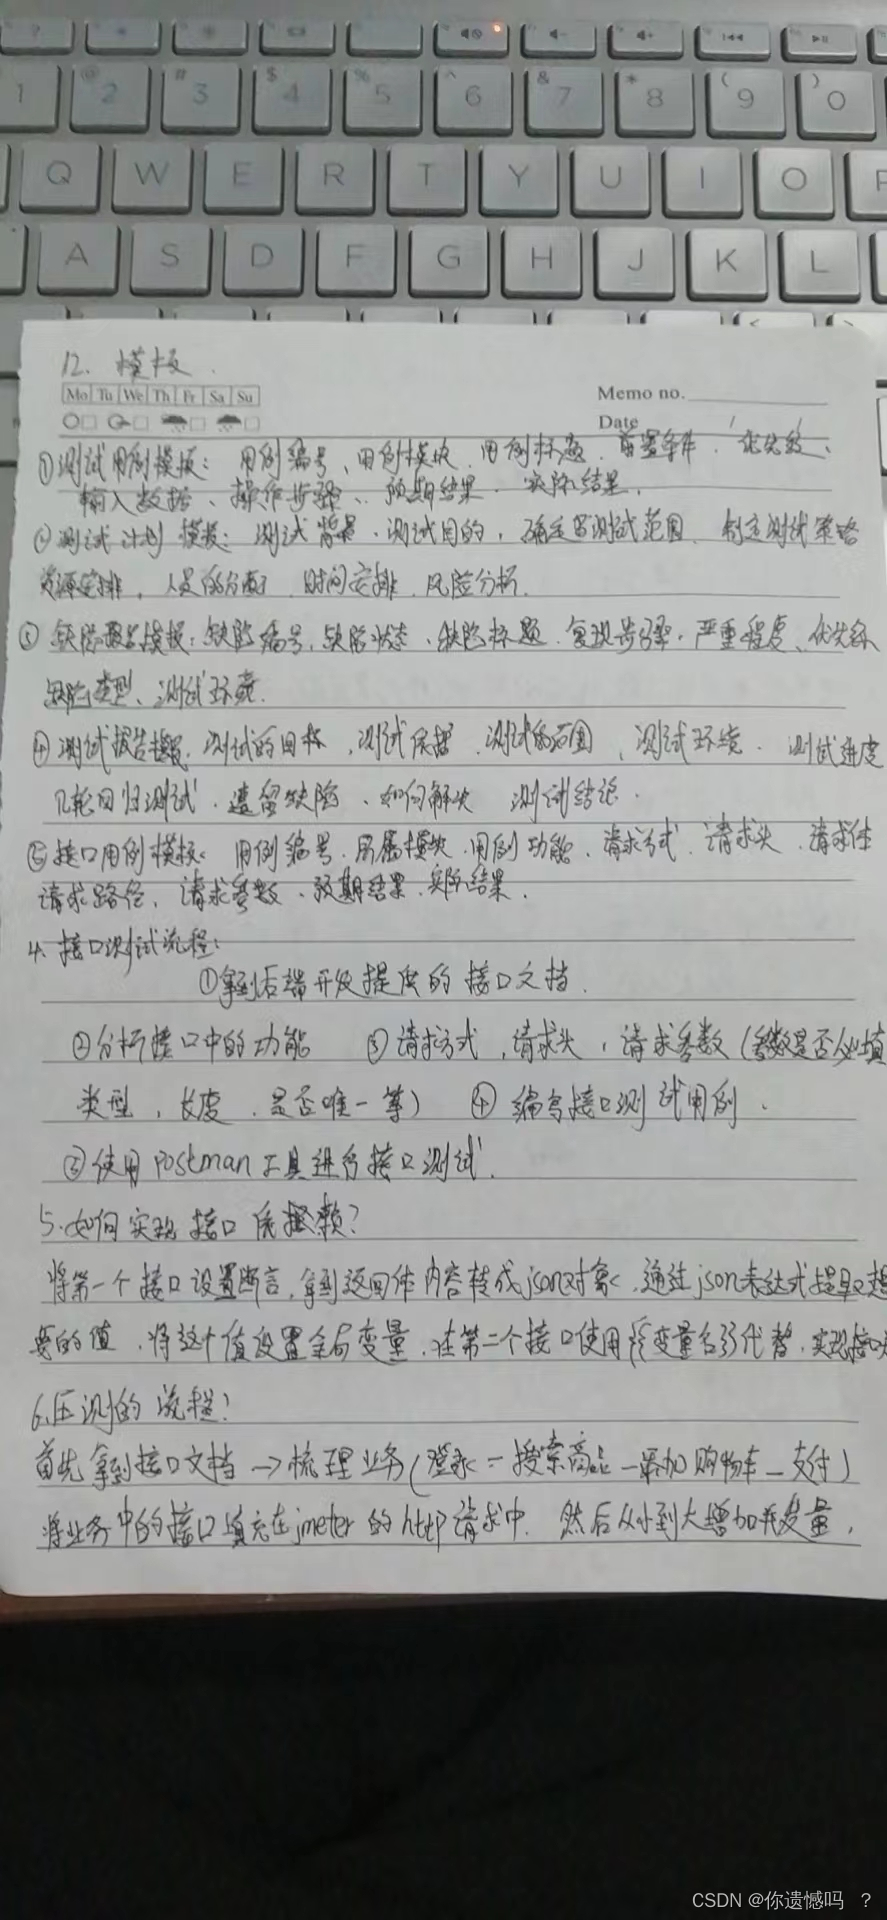 1 2 3 4 5 6 7 8 9 0
Q W E R T Y U I O P
A S D F G H J K L
12. 模板.
Mo Tu We Th Fr Sa Su
Memo no.
Date
①测试用例模板: 用例编号、用例模块、用例标题、前置条件、优先级、
输入数据、操作步骤、预期结果、实际结果.
②测试计划模板: 测试背景、测试目的, 确定测试范围、制定测试策略
资源安排, 人员的分配、时间安排、风险分析.
③缺陷报告模板: 缺陷编号, 缺陷状态、缺陷标题、复现步骤、严重程度、优先级
缺陷类型、测试环境.
④测试报告模板, 测试的目标, 测试依据、测试的范围、测试环境、测试进度
几轮回归测试、遗留缺陷、如何解决 测试结论.
⑤接口用例模板: 用例编号, 所属模块, 用例功能、请求方式、请求头、请求体
请求路径, 请求参数、预期结果、实际结果.
4. 接口测试流程:
①拿到后端开发提供的接口文档.
②分析接口中的功能 ③请求方式, 请求头, 请求参数 (参数是否必填
类型, 长度, 是否唯一等) ④编写接口测试用例.
⑤使用Postman工具进行接口测试.
5.如何实现接口依赖?
将第一个接口设置断言, 拿到返回体内容转成json对象, 通过json表达式提取想
要的值, 将这个值设置全局变量, 在第二个接口使用变量名代替, 实现接口
6.压测的流程?
首先拿到接口文档→梳理业务(登录-搜索商品-添加购物车-支付)
将业务中的接口填充在jmeter的http请求中, 然后从小到大增加并发量,
CSDN @你遗憾吗 ?